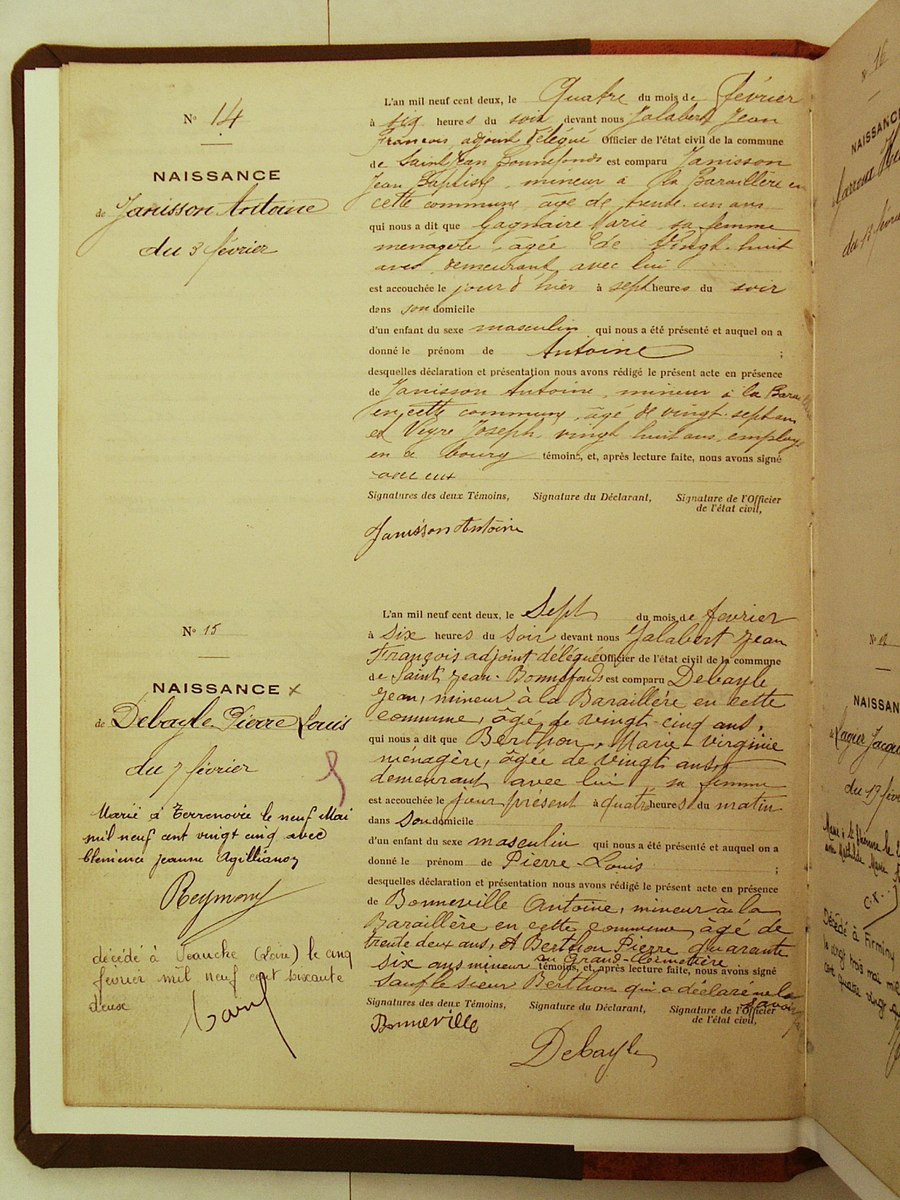 N° 14
NAISSANCE
de Janisson Antoine
du 3 février
L'an mil neuf cent deux, le Quatre du mois de février
à six heures du soir devant nous Jalabert Jean
François, adjoint délégué Officier de l'état civil de la commune
de Saint Jean Bonnefonds est comparu Janisson
Jean Baptiste, mineur à la Baraillère en
cette commune, age de trente un ans
qui nous a dit que Gagnaire Marie sa femme
menagère, agée de vingt huit
ans, demeurant avec lui
est accouchée le jour d'hier à sept heures du soir
dans son domicile
d'un enfant du sexe masculin qui nous a été présenté et auquel on a
donné le prénom de Antoine ;
desquelles déclaration et présentation nous avons rédigé le présent acte en présence
de Janisson Antoine, mineur à la Baraillère
en cette commune, âgé de vingt-sept ans
et Veyre Joseph, vingt huit ans, employé
en a bourg témoins, et, après lecture faite, nous avons signé
avec eux
Signatures des deux Témoins, Signature du Déclarant, Signature de l'Officier
de l'état civil,
Janisson Antoine
N° 15
NAISSANCE x
de Debayle Pierre Louis
du 7 février
Marié à Terrenoire le neuf Mai
mil neuf cent vingt cinq avec
Clémence Jeanne
Reymond
décédé à Veauche (Loire) le cinq
février mil neuf cent soixante
deux
L'an mil neuf cent deux, le Sept du mois de février
à Six heures du Soir devant nous Jalabert Jean
François adjoint délégué Officier de l'état civil de la commune
de Saint Jean-Bonnefonds est comparu Debayle
Jean, mineur à la Baraillère en cette
commune, âgé de vingt-cinq ans,
qui nous a dit que Berthon, Marie-Virginie
ménagère, âgée de vingt ans
demeurant avec lui, sa femme
est accouchée le jour présent à quatre heures du matin
dans Son domicile
d'un enfant du sexe masculin qui nous a été présenté et auquel on a
donné le prénom de Pierre-Louis ;
desquelles déclaration et présentation nous avons rédigé le présent acte en présence
de Bonneville Antoine, mineur à la
Baraillère en cette commune, âgé de
trente deux ans, et Berthon Pierre quarante
six ans mineur au Grand-Cimetière témoins, et, après lecture faite, nous avons signé
sauf le sieur Berthon qui a déclaré ne le
savoir
Signatures des deux Témoins, Signature du Déclarant, Signature de l'Officier
de l'état civil,
Bonneville
Debayle
N° 16
NAISSANCE
N° 18
NAISSANCE